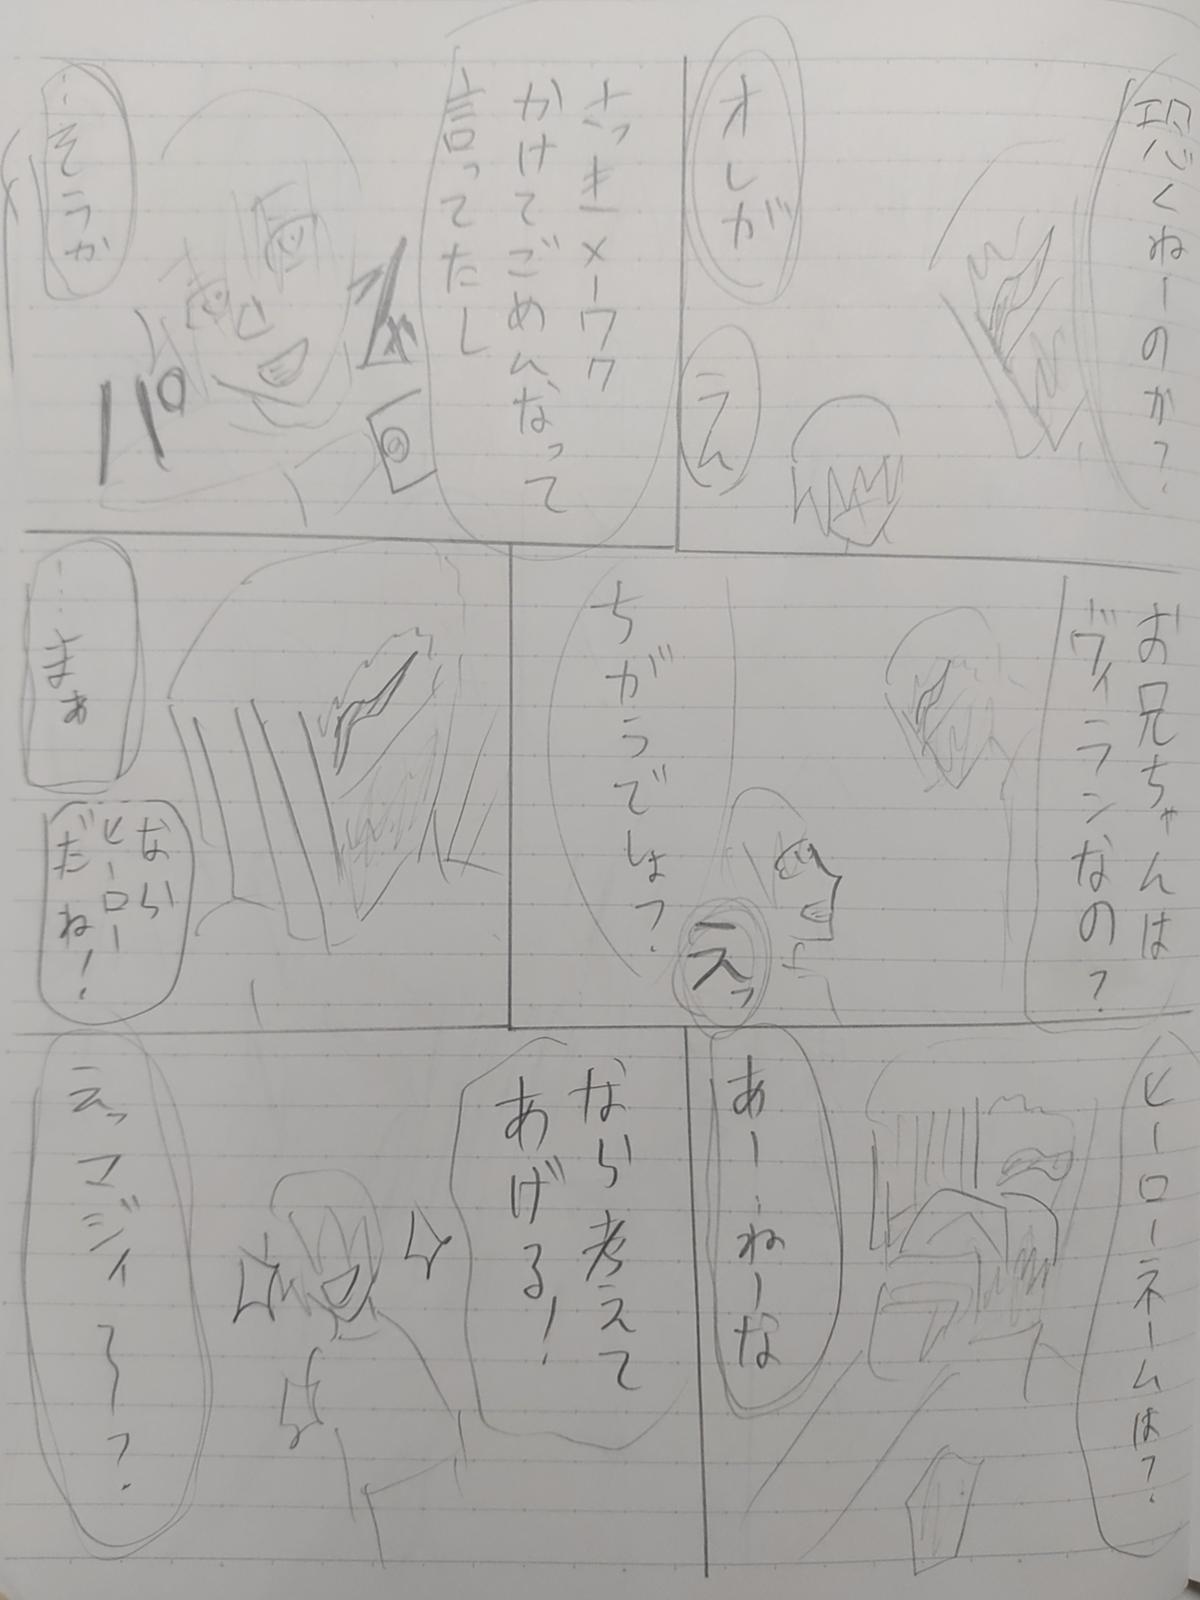 恐くねーのか?
オレが
うん
さっきメーワク
かけてごめんなって
言ってたし
…そうか
パ
お兄ちゃんは
ヴィランなの?
えっ
ちがうでしょ?
……まぁ
なら
ヒーロー
だね!
ヒーローネームは?
あー…ねーな
なら考えて
あげる!
えっマジィ〜?